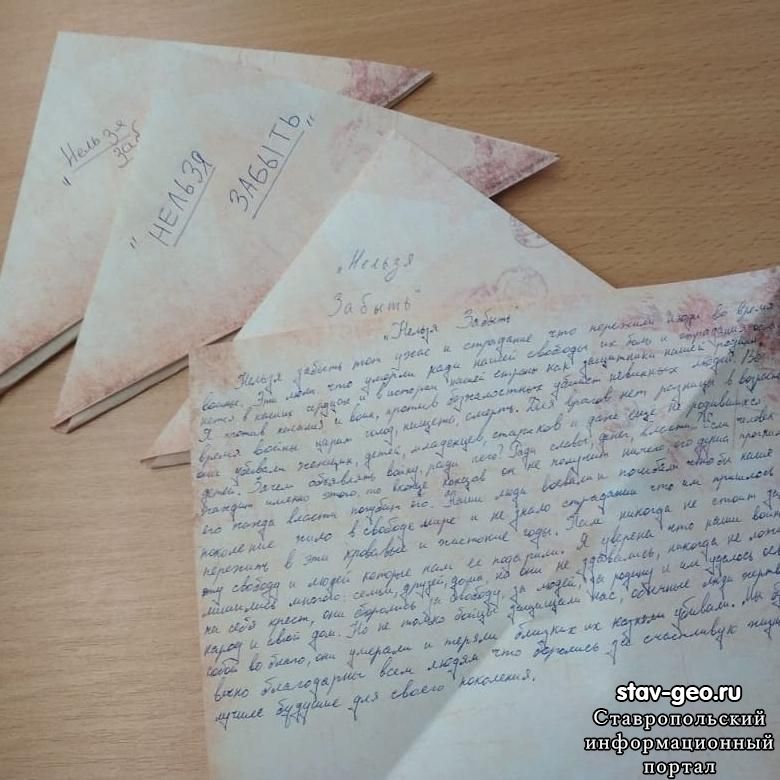 „Нельзя
Заб
„НЕЛЬЗЯ
ЗАБЫТЬ“
„Нельзя
Забыть“
„Нельзя Забыть“
Нельзя забыть тот ужас и страдание что пережили люди во время
войны. Эти люди что умерли ради нашей свободы их боль и страдания оста
нется в наших сердцах и в истории нашей страны как защитники нашей родины.
Я против насилия и войн, против безжалостных убийст невинных людей. Во
время войны царит голод, нищета, смерть. Для врагов нет разницы в возрасте
они убивали женщин, детей, младенцев, стариков и даже еще не родившихся
детей. Зачем объявлять войну, ради чего? Ради славы, денег, власти. Если человек
жаждит именно этого, то вконце концов он не получит ничего, его
его жажда власти погубит его. Наши люди воевали и погибали чтобы наше
поколение жило в свободе мире и не знало страданий что им пришлось
пережить в эти кровавые и жестокие годы. Нам никогда не стоит
эту свободу и людей которые нам ее подарили. Я уверена что наши
лишились многого: семьи, друзей, дома, но они не сдавались, никогда не
на себя крест, они боролись за свободу, за людей, за родину и им удалось
народ и свой дом. Но не только бойцы защищали нас, обычные люди
собой во благо, они умерали и теряли близких их убивали. Мы
вечно благодарны всем людям что боролись за счастливую
лучшее будущее для своего поколения.
stav-geo.ru
Ставропольский
информационный
портал